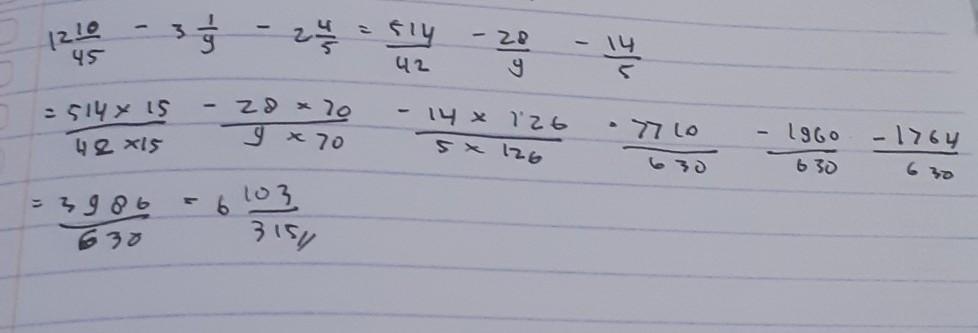 12 10/45 - 3 1/9 - 2 4/5 = 514/42 - 28/9 - 14/5
= 514 × 15/42 × 15 - 28 × 70/9 × 70 - 14 × 126/5 × 126 = 7710/630 - 1960/630 - 1764/630
= 3986/630 = 6 103/315 //